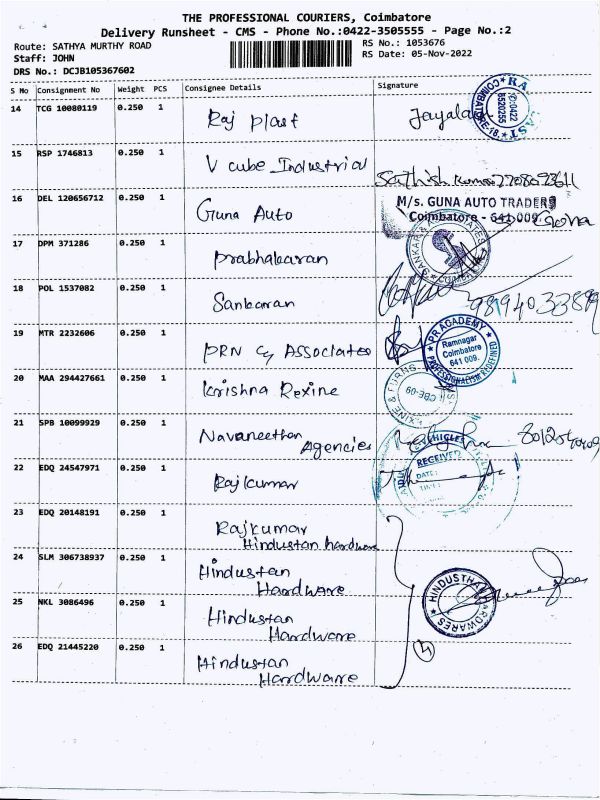 THE PROFESSIONAL COURIERS, Coimbatore
Delivery Runsheet - CMS - Phone No.:0422-3505555 - Page No.:2
Route: SATHYA MURTHY ROAD
RS No.: 1053676
Staff: JOHN
RS Date: 05-Nov-2022
DRS No.: DCJB105367602
S No Consignment No Weight PCS Consignee Details Signature
14 TCG 10080119 0.250 1 Raj plast
15 RSP 1746813 0.250 1 V cube Industrial
16 DEL 120656712 0.250 1 Guna Auto
M/s. GUNA AUTO TRADERS
Coimbatore - 641 009.
17 DPM 371286 0.250 1 Prabhakaran
18 POL 1537082 0.250 1 Sankaran
19 MTR 2232606 0.250 1 PRN & Associates
PR ACADEMY
Ramnagar
Coimbatore
641 009.
PROFESSIONALISM REDEFINED
20 MAA 294427661 0.250 1 Krishna Rexine
CBE-09
21 SPB 10099929 0.250 1 Navaneethan
Agencies
22 EDQ 24547971 0.250 1 Rajkumar
RECEIVED
DATE:
23 EDQ 20148191 0.250 1 Rajkumar
Hindustan hardware
24 SLM 306738937 0.250 1 Hindustan
Hardware
25 NKL 3086496 0.250 1 Hindustan
Hardware
26 EDQ 21445220 0.250 1 Hindustan
Hardware
4